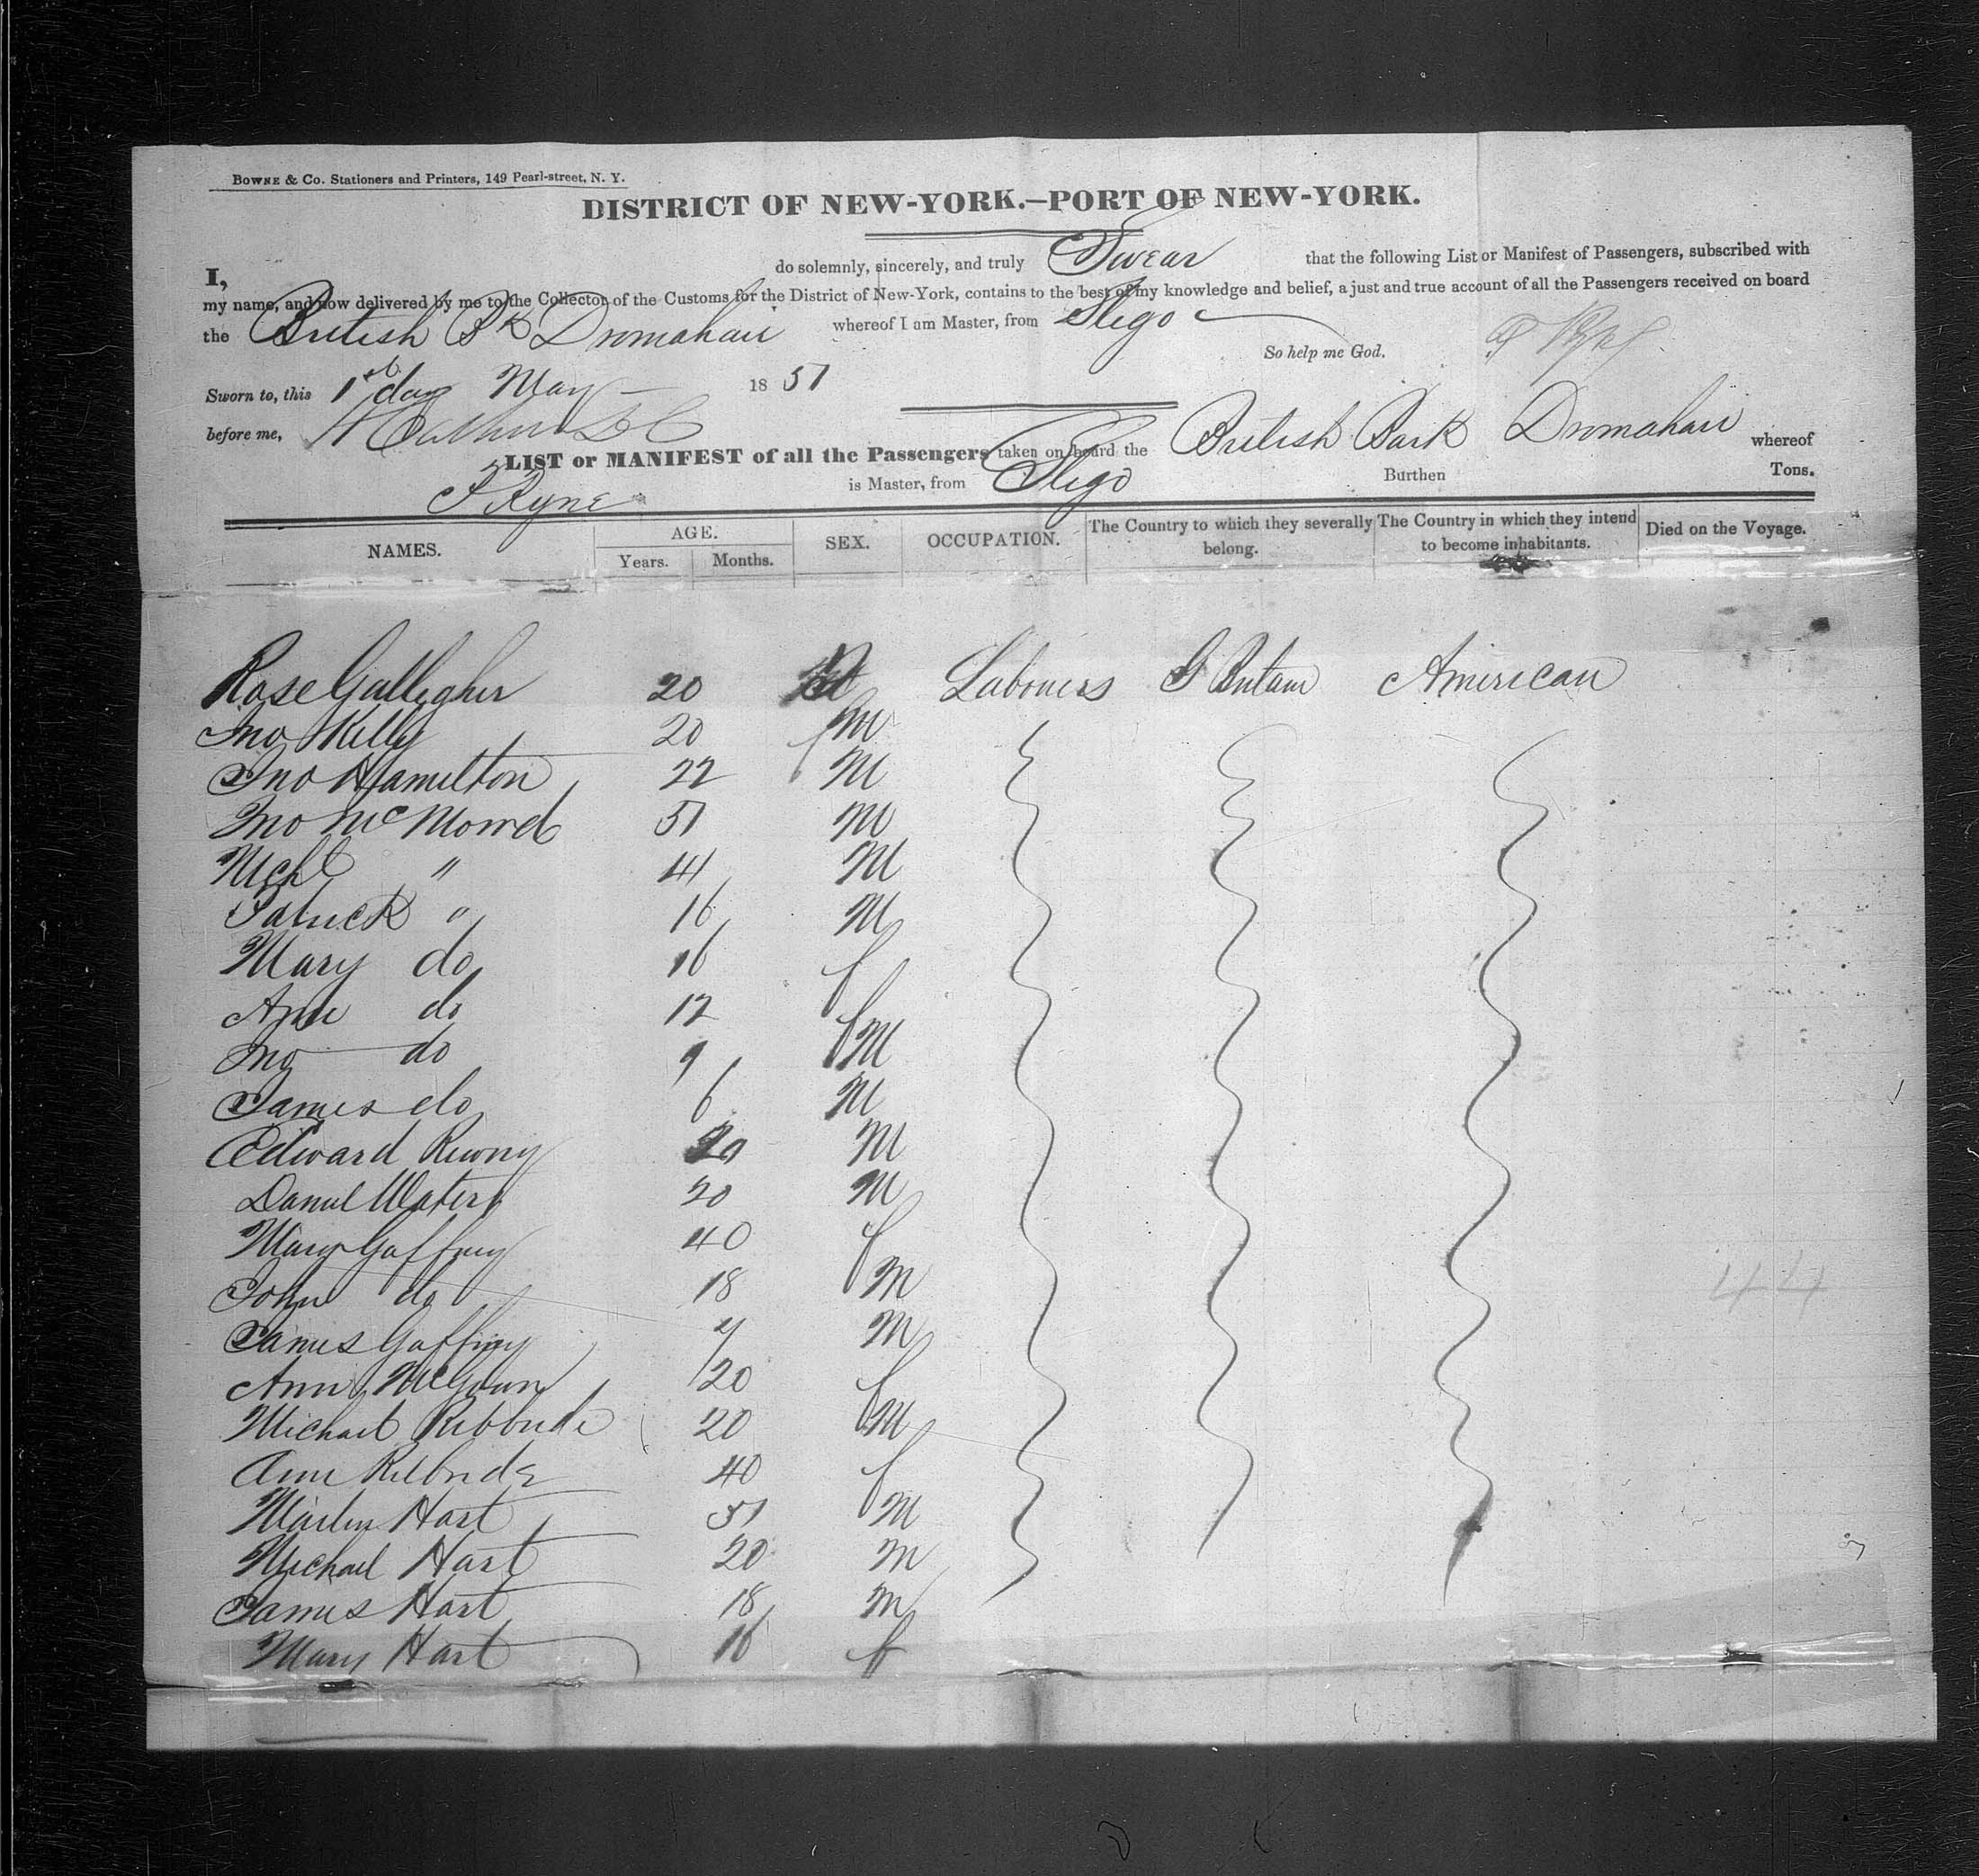 BOWNE & Co. Stationers and Printers, 149 Pearl-street, N. Y.
DISTRICT OF NEW-YORK.—PORT OF NEW-YORK.
I, do solemnly, sincerely, and truly Swear that the following List or Manifest of Passengers, subscribed with
my name, and now delivered by me to the Collector of the Customs for the District of New-York, contains to the best of my knowledge and belief, a just and true account of all the Passengers received on board
the British Bk Dromahair whereof I am Master, from Sligo
So help me God.
Sworn to, this 1st day May 1851
before me,
LIST or MANIFEST of all the Passengers taken on board the British Bark Dromahair whereof
P Ryne is Master, from Sligo Burthen Tons.
NAMES. AGE. Years. Months. SEX. OCCUPATION. The Country to which they severally belong. The Country in which they intend to become inhabitants. Died on the Voyage.
Rose Gallegher 20 Labourers G Britain American
Jno Kelly 20 M
Jno Hamilton 22 M
Jno McMorrd 51 M
Michl " 41 M
Patrick " 16 M
Mary do 16 f
Ann do 12 f
Jno do 9 M
James do 6 M
Edward 20 M
Daniel Waters 20 M
Mary Gaffney 40 f
John do 18 M
James Gaffney M
Ann McGowan 20 f
Michael Kilbride 20 M
Ann Kilbride 40 f
Martin Hart 51 M
Michael Hart 20 M
James Hart 18 M
Mary Hart 16 f
44